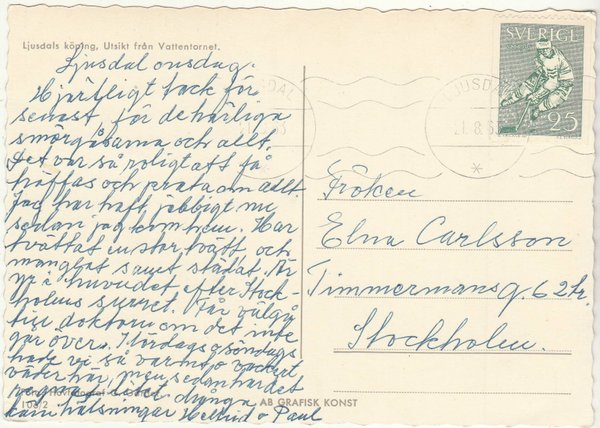 Ljusdals köping, Utsikt från Vattentornet.
Ljusdal onsdag.
Hjärtligt tack för
senast, för de härliga
smörgåsarna och allt.
Det var så roligt att få
träffas och prata om allt
Jag har haft jobbigt nu
sedan jag kom hem. Har
tvättat en stor tvätt och
manglat samt städat. Är
i huvudet efter Stock-
holms
Får väl gå
till doktorn om det inte
går över. I lördags o söndags
hade vi så varmt o vackert
väder här, men sedan har det
regnat
hälsningar Hellrid o Paul
108/2
AB GRAFISK KONST
SVERIGE
25
LJUSDAL
Fröken
Elna Carlsson
Timmermansg. 62 tr.
Stockholm.